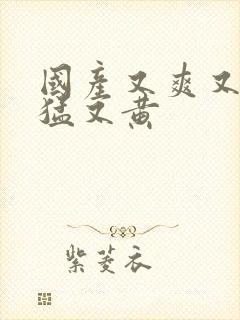 國產又爽又
猛又黄
紫菱衣